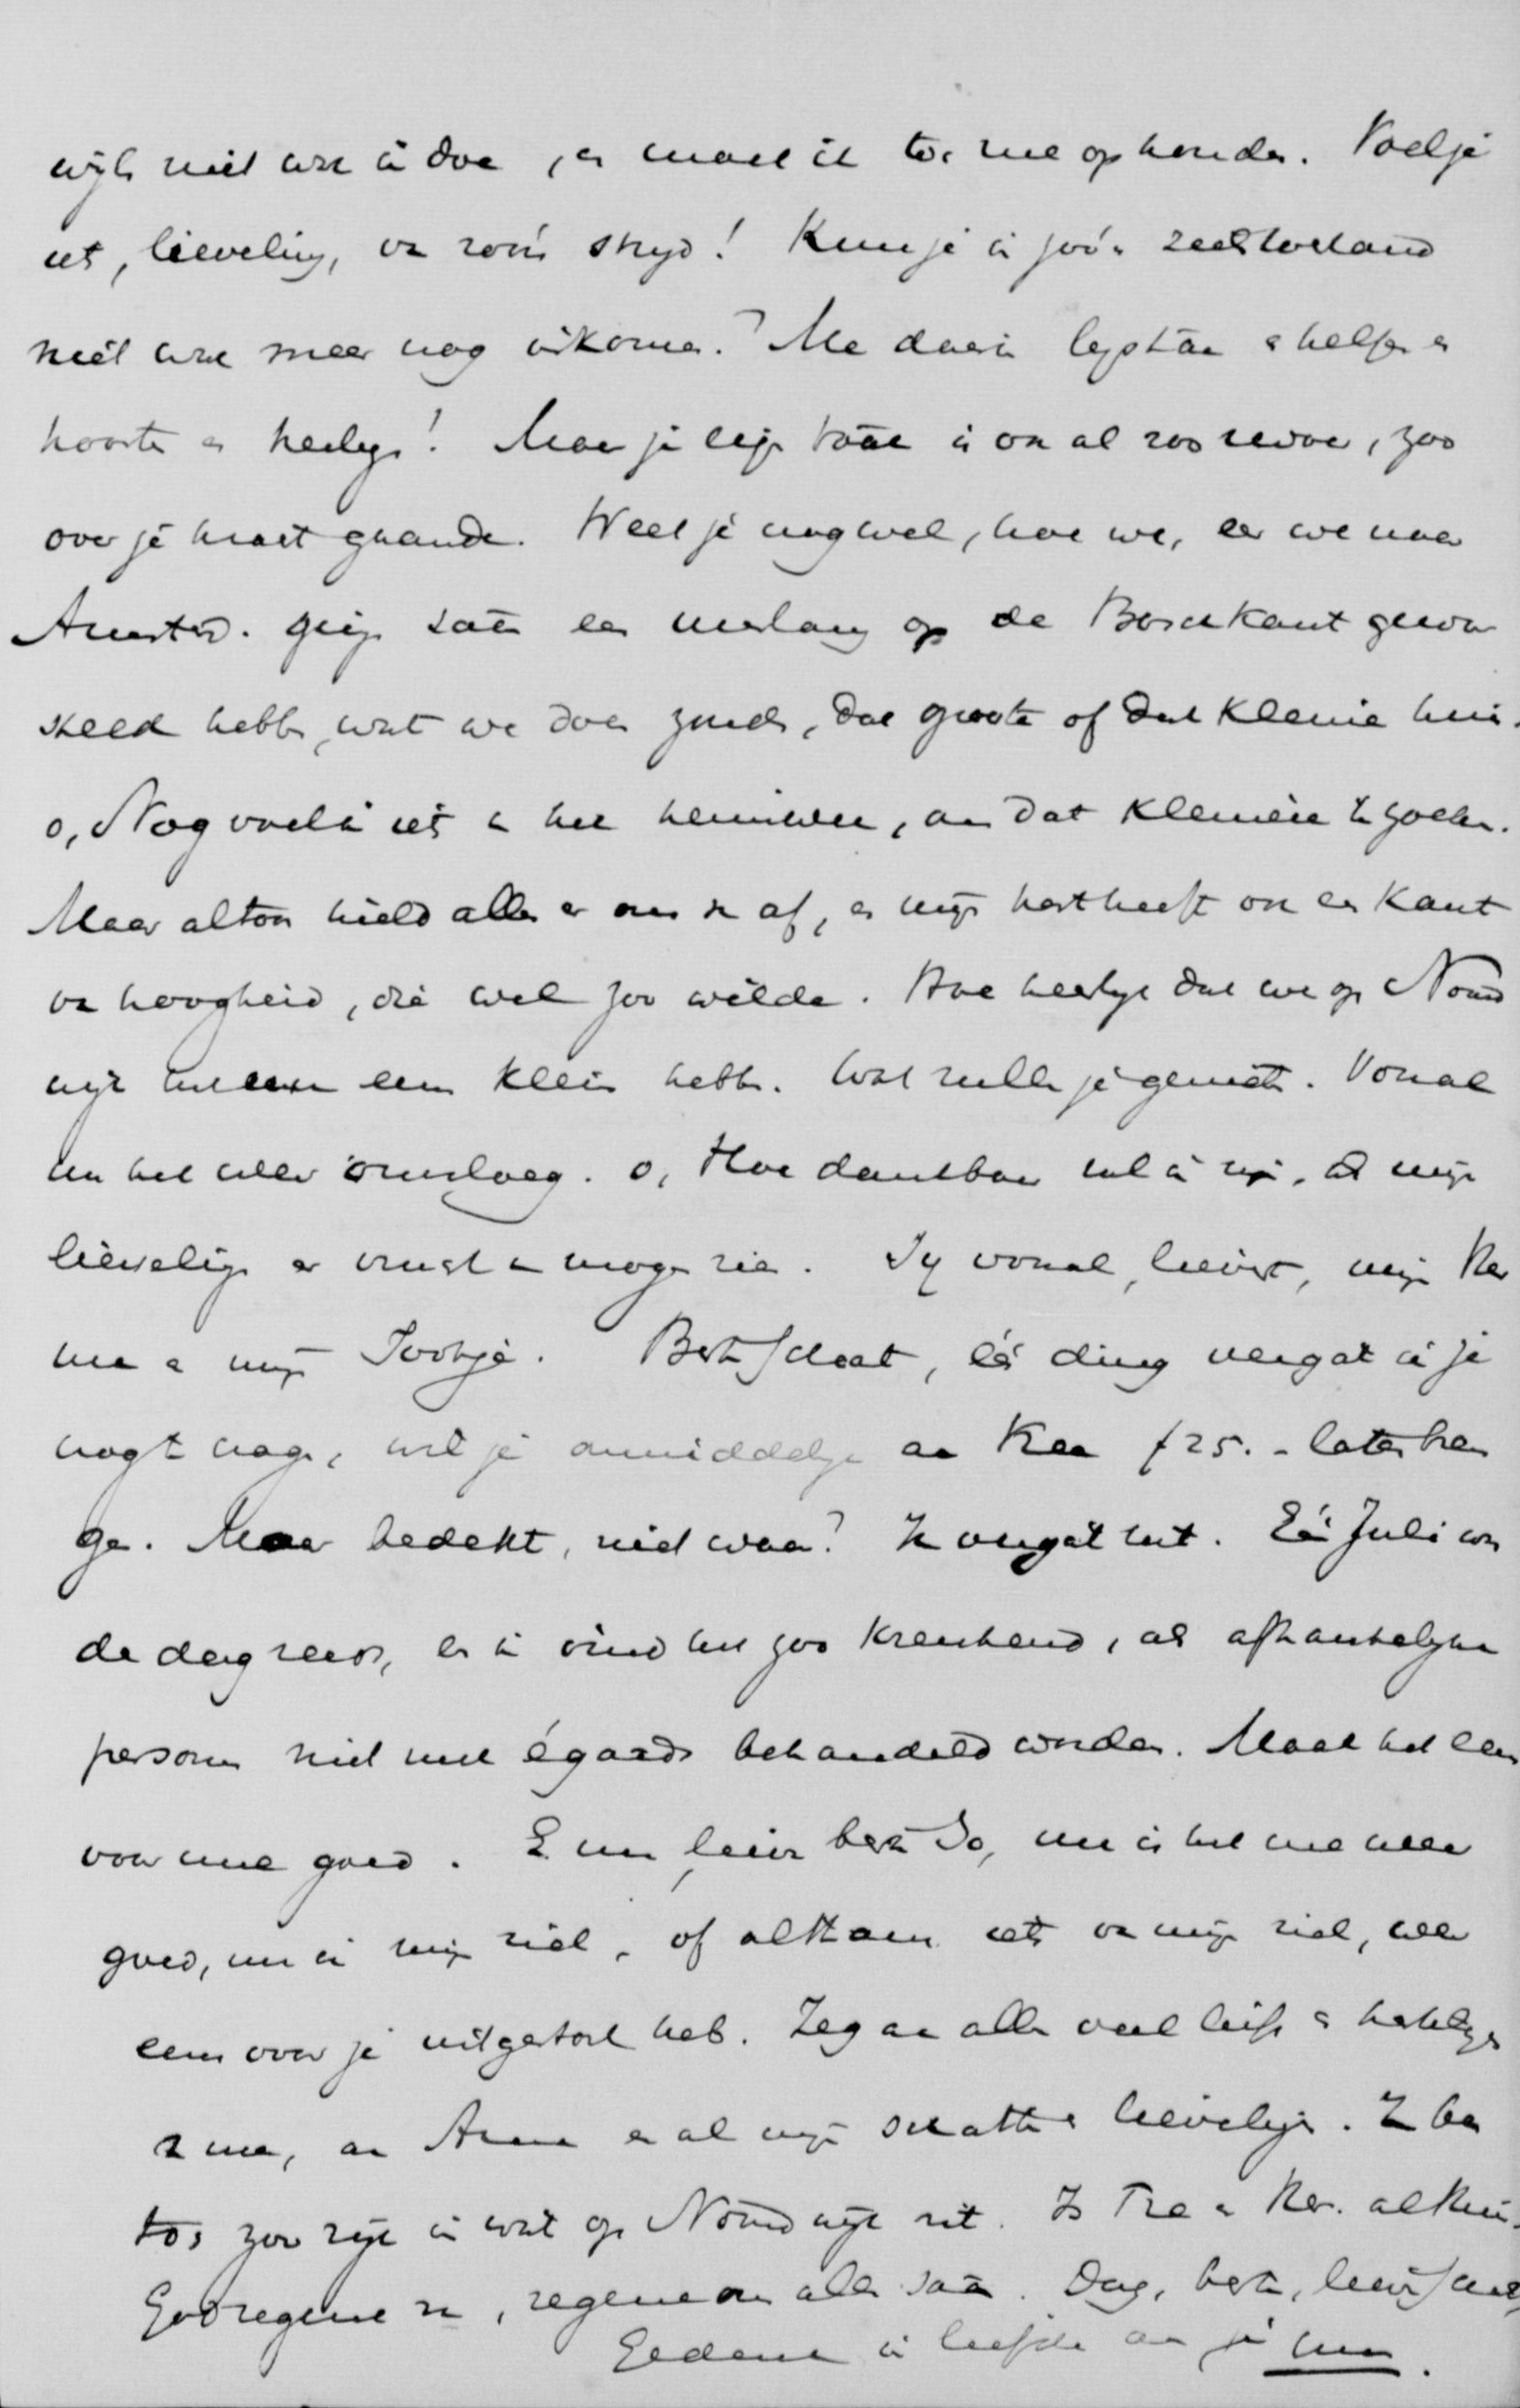 niet wat ik doe, en moet ik toe me ophouden. Voel je
iets, lieveling, van zoo'n stryd! Kun je in zoo'n zielstoestand
niet wat meer nog inkomen? Me daarin bystaan en helpen en
Maar je bent in on al zoo
over je kracht gaande. Weet je nog wel, hoe we, eer we naar
Amsterd. gingen saam een op de Boschkant gewan
deld hebben, wat we doen zouden, dat groote of dat kleine huis.
o, Nog voel ik iets van het heimwee, om dat kleinere te zoeken.
Maar altoos hield alles er ons van af, en mijn hart heeft ook een kant
van hoogheid, die wel zoo wilde. Hoe heerlyk dat we op Noord
wijk nu een klein hebben. Wat zullen je genieten. Vooral
nu het weer omsloeg. o, Hoe dankbaar zal ik zijn, als mijn
lieveling er vrucht van mogen zien. Jy vooral, lieverd, mijn Her
man en mijn Joohje. Beste schat, één ding vergat ik je
nog te vragen, wil je onmiddelyk aan Kaa f 25.- laten bren
gen. Maar bedekt, niet waar? Ik vergat het. Eén Juli was
de dag reeds, en ik vind het zoo krenkend, als afhankelyke
persoon niet met égards behandeld worden. Maak het eens
voor me goed. En nu, lieve beste Jo, nu is het me weer
goed, nu ik mijn ziel, of althans iets van mijn ziel, weer
eens voor je uitgestort heb. Zeg aan allen veel liefs en hartelyks
van me, aan Anna en al mijn schatten en lievelingen. Ik ben
toch zoo blij in wat op Noordwijk zit. Is Tra en Her. al thuis.
God zegene ze, zegene ons allen saam. Dag, beste, lieve schat,
Gedenk in liefde aan je man.